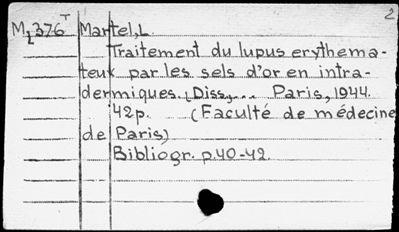 2
M₂376ᵀ Martel, L.
Traitement du lupus erythema-
teux par les sels d'or en intra-
dermiques. (Diss.,... Paris, 1944.
42p. (Faculté de médecine
de Paris)
Bibliogr. p.40-42.